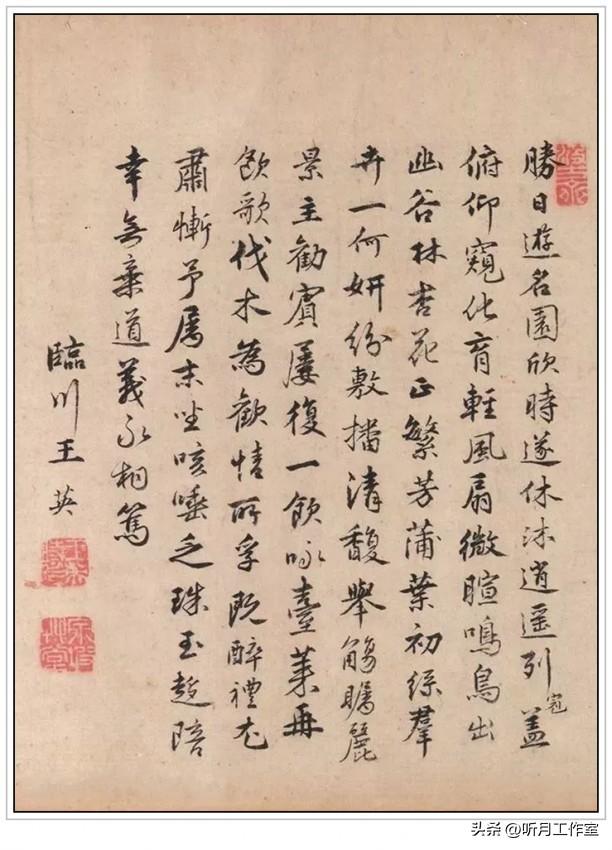 勝日遊名園欣時遂休沐逍遥列冠盖
俯仰窺化育輕風扇微暄鳴鳥出
幽谷林杏花正繁芳蒲葉初綠羣
卉一何妍紛敷播清馥舉觴矚麗
景主勸賓屢復一飲咏臺萊再
飲歌伐木為歡情所孚既醉禮尤
肅慚予屬末坐咳唾乏珠玉趍陪
幸無棄道義永相篤
臨川王英
头条 @听月工作室